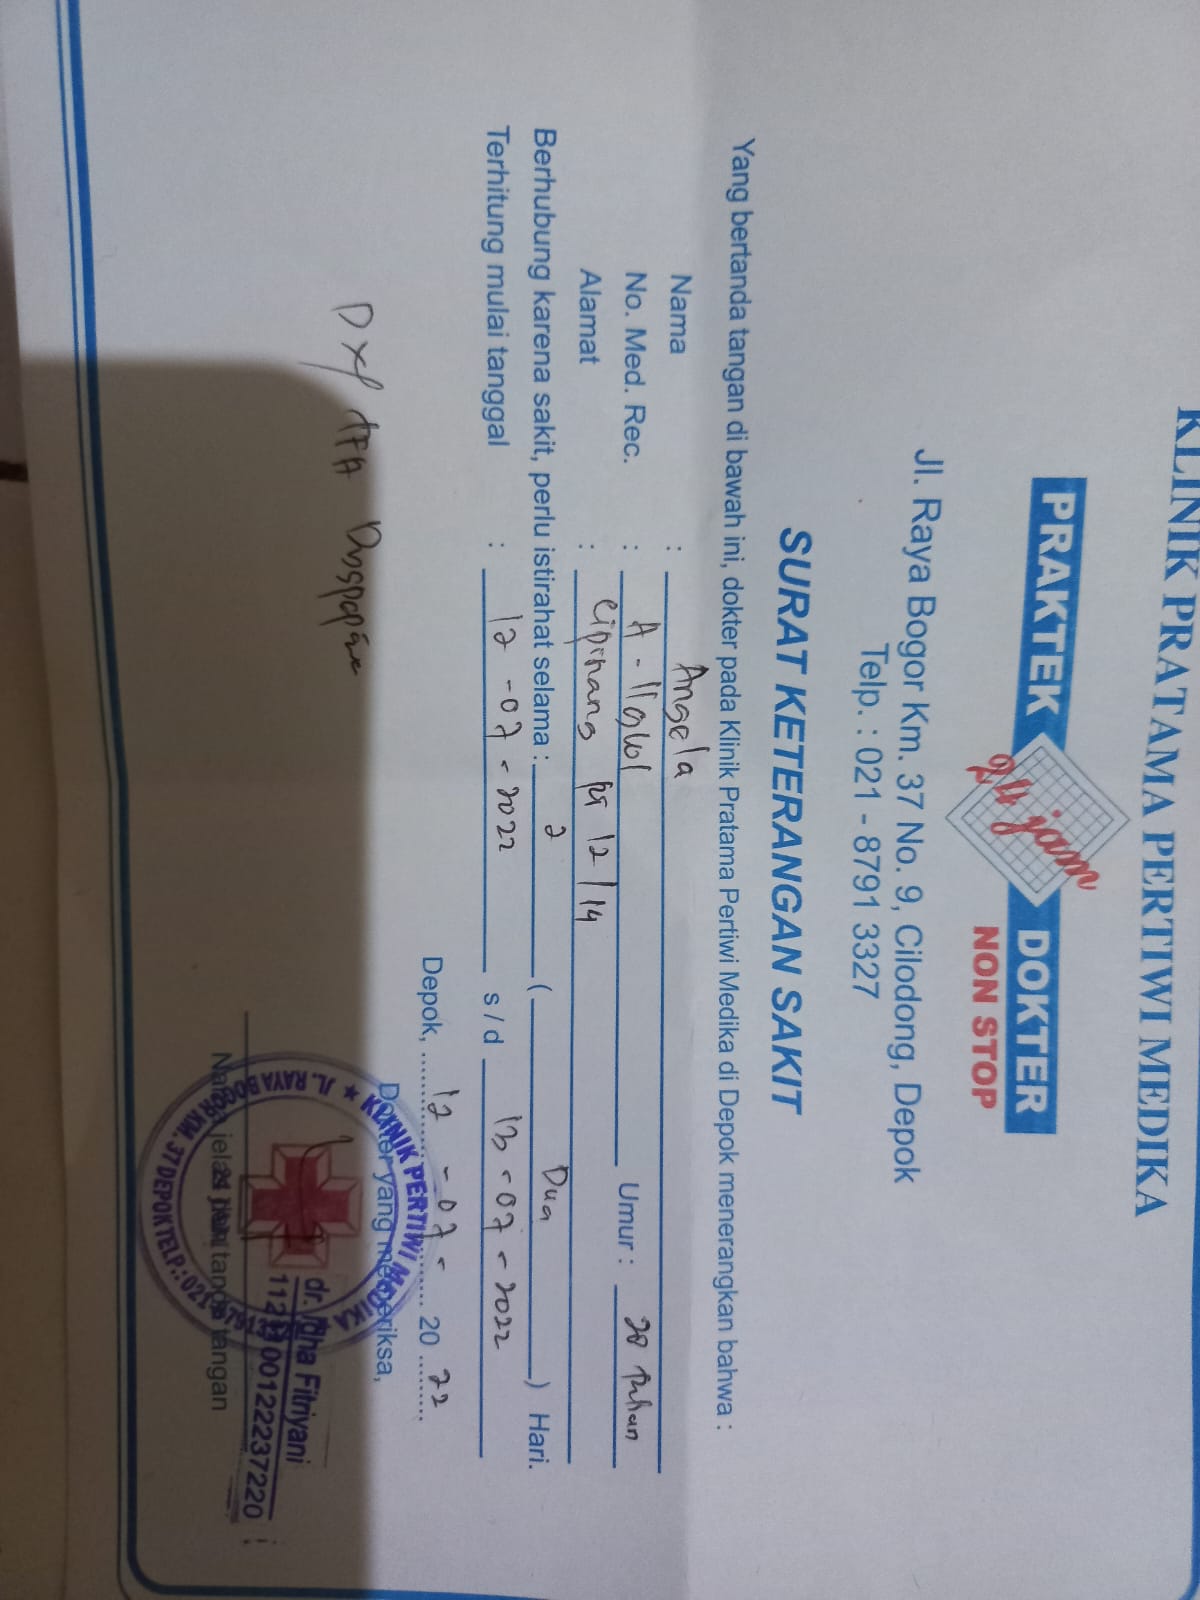 KLINIK PRATAMA PERTIWI MEDIKA
PRAKTEK 24 jam DOKTER
NON STOP
Jl. Raya Bogor Km. 37 No. 9, Cilodong, Depok
Telp. : 021 - 8791 3327
SURAT KETERANGAN SAKIT
Yang bertanda tangan di bawah ini, dokter pada Klinik Pratama Pertiwi Medika di Depok menerangkan bahwa :
Nama : Angela
No. Med. Rec. : Umur : 28
Alamat : Cipinang 12/14
Berhubung karena sakit, perlu istirahat selama : 2 ( Dua ) Hari.
Terhitung mulai tanggal : 12-07-2022 s/d 13-07-2022
Depok, 12-07-2022
Dokter yang memeriksa,
KLINIK PERTIWI MEDIKA
JL. RAYA BOGOR KM. 37 DEPOK TELP.: 021
Fitriyani
Nama jelas dan tanda tangan